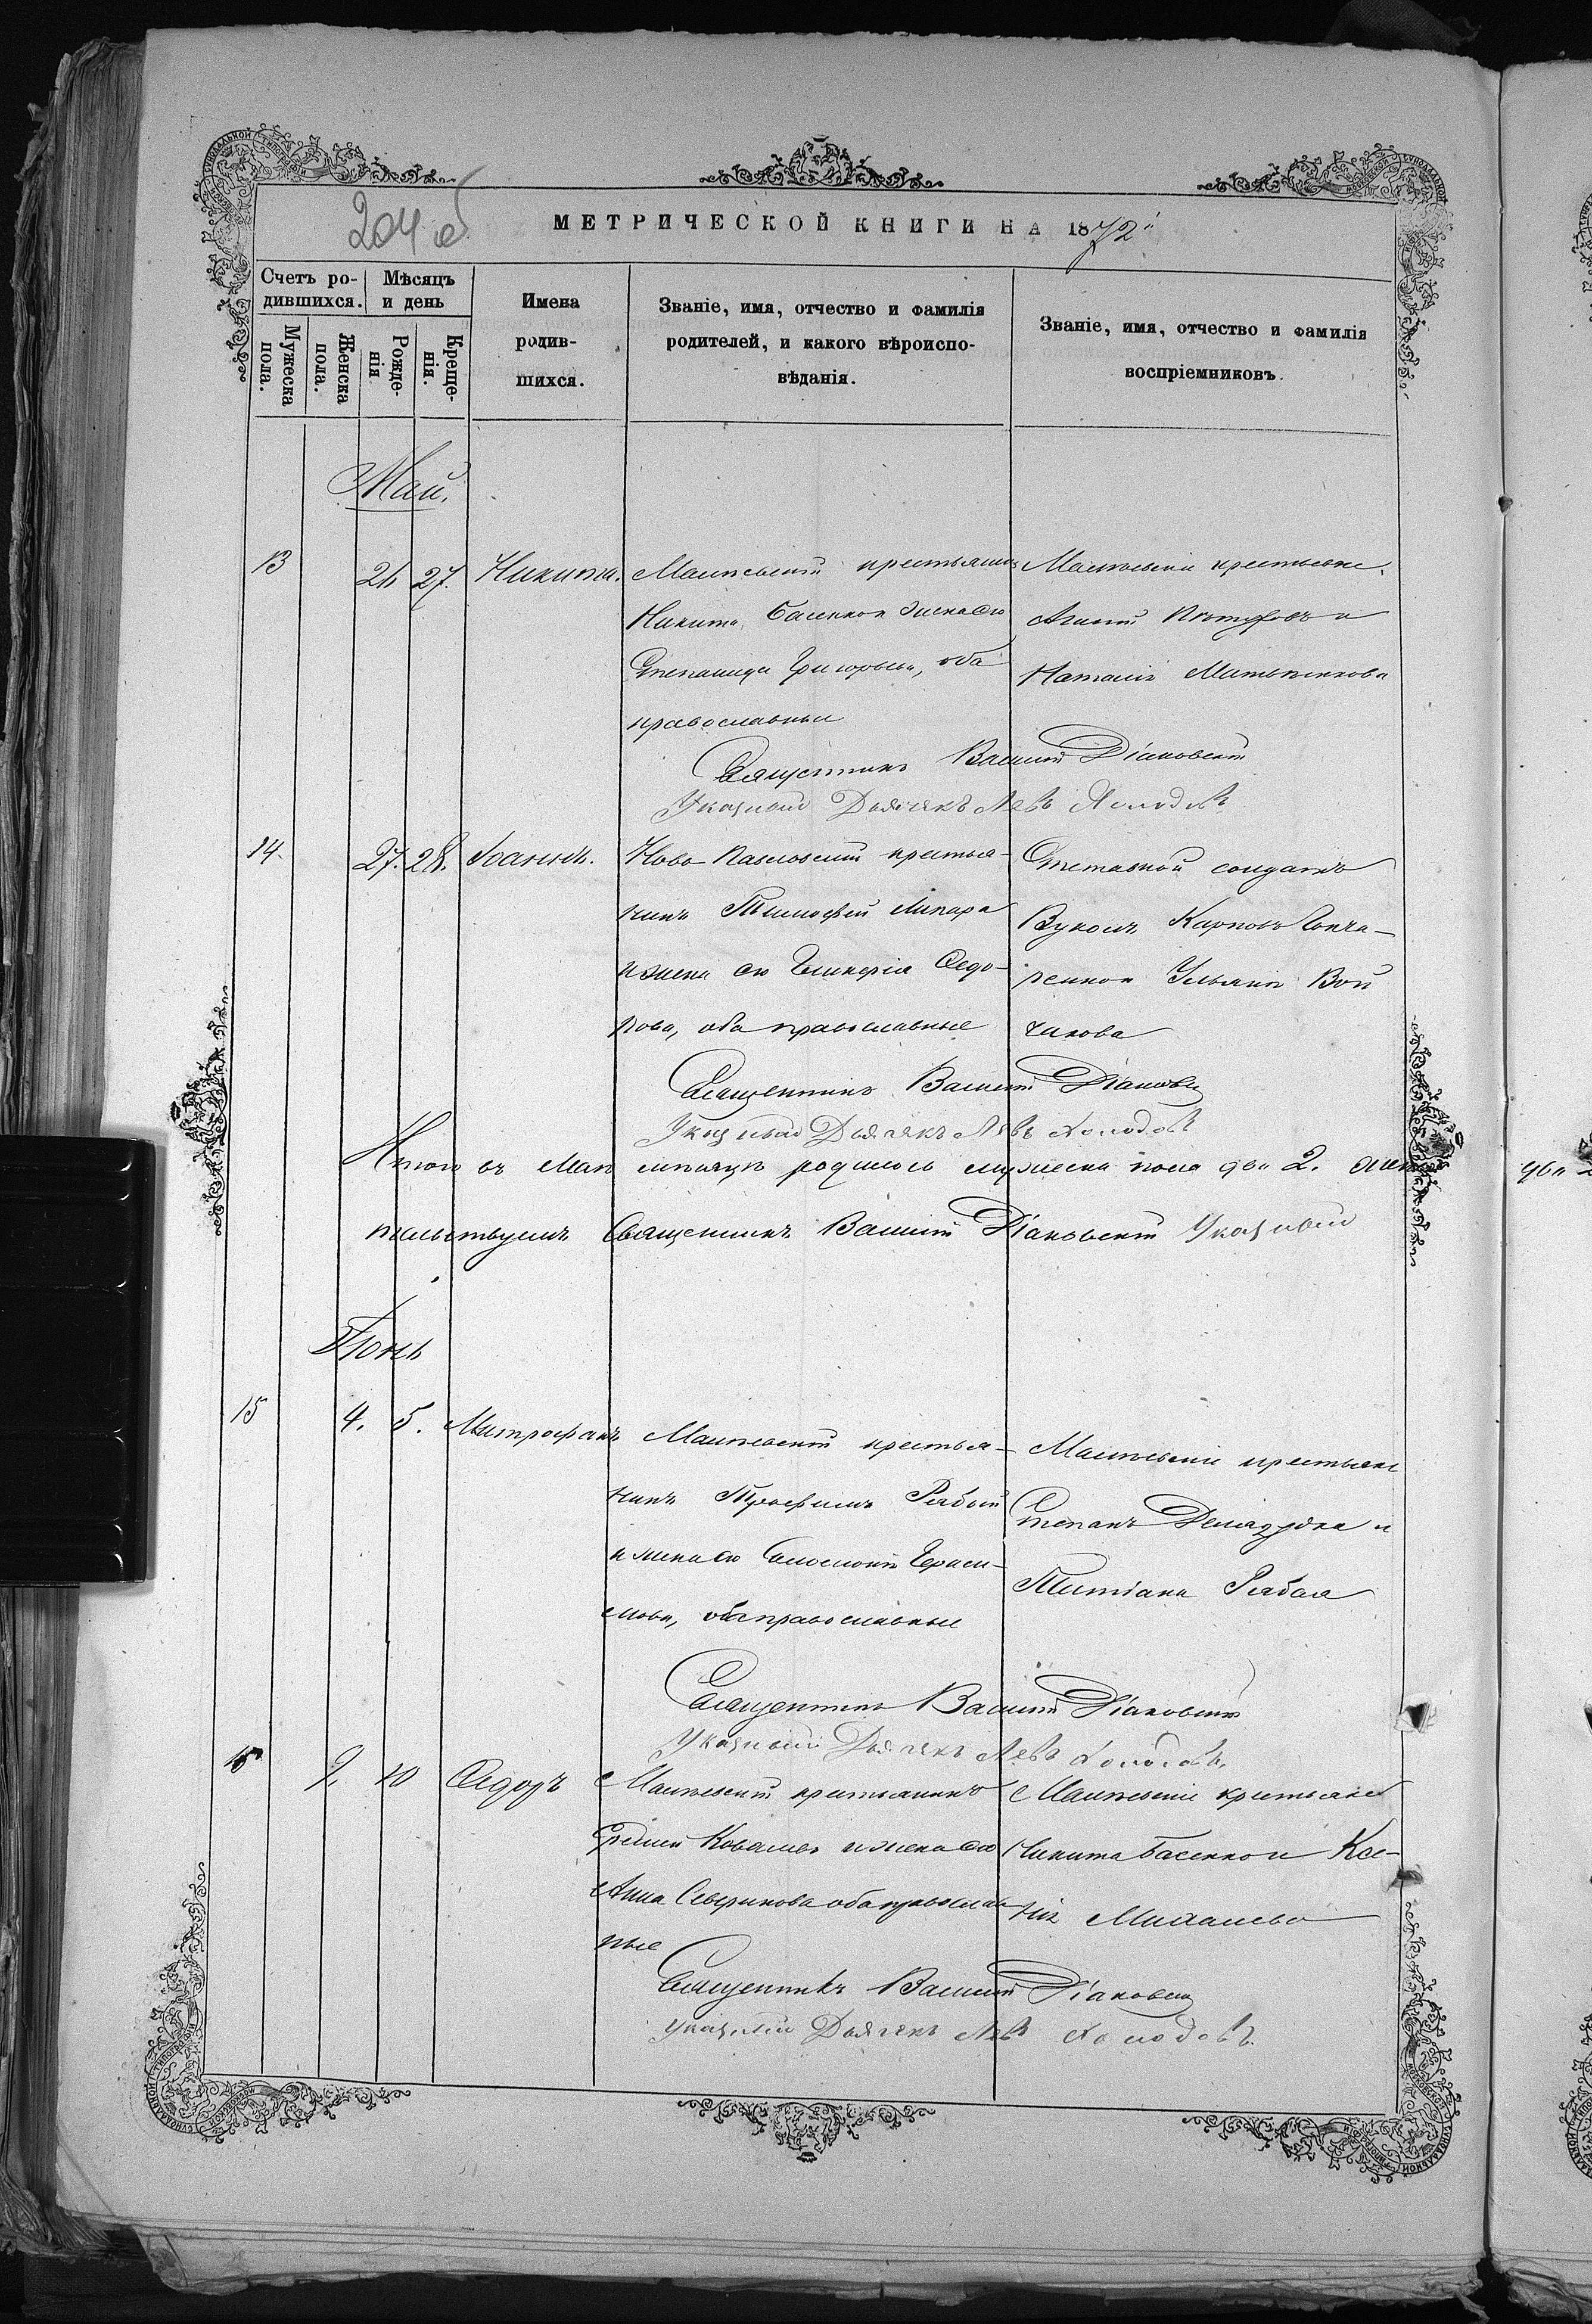 204 об
МЕТРИЧЕСКОЙ КНИГИ НА 1872
Счетъ ро-
дившихся.
Мужеска пола.
Женска пола.
Мѣсяцъ
и день
Рожде-
нія
Креще-
нія.
Имена
родив-
шихся.
Званіе, имя, отчество и фамилія
родителей, и какого вѣроиспо-
вѣданія.
Званіе, имя, отчество и фамилія
воспріемниковъ.
Май.
13 26 27. Никита.
крестьянинъ
Никита Басенко и жена его
Степанида Григорьева, оба
православные
крестьяне
и
Наталія
Священникъ Василій Діаковскій
Указный Дьячекъ Левъ Холодовъ
14. 27. 28. Іоаннъ.
Ново-Павловскій крестья-
нинъ Тимофей
и жена его Гликерія Ѳедо-
рова, оба православные
Отставной солдатъ
Вуколъ Карповъ Гонча-
ренко и Ульяна Вой
чикова
Священникъ Василій Діаковскій
Указный Дьячекъ Левъ Холодовъ
Итого въ Маѣ мѣсяцѣ родилось мужеска пола два 2.
тельствуемъ Священникъ Василій Діаковскій Указный
два
Іюнь
15 4. 5. Митрофанъ
крестья-
нинъ Трофимъ Рябый
и жена его Соломонія Гераси-
мова, оба православные
крестьяне
Степанъ и
Татіана Рябая
Священникъ Василій Діаковскій
Указный Дьячекъ Левъ Холодовъ
16 9. 10 Ѳедоръ
крестьянинъ
Ковалевъ и жена его
Анна Северинова оба православ
ные
крестьяне
Никита Басенко и Ксе-
нія Михалева
Священникъ Василій Діаковскій
Указный Дьячекъ Левъ Холодовъ